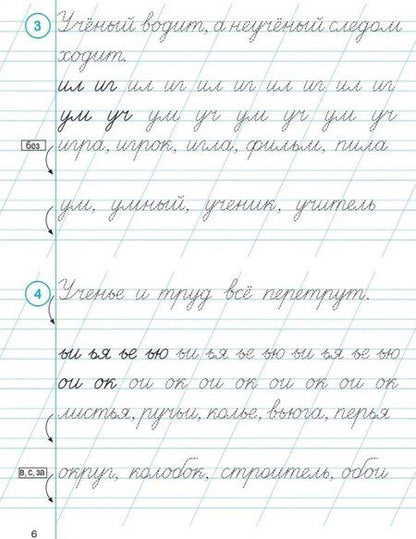 3 Учёный водит, а неучёный следом
ходит.
ил иг ил иг ил иг ил иг ил иг
ум уч ум уч ум уч ум уч ум уч
без игра, игрок, игла, фильм, пила
ум, умный, ученик, учитель
4 Ученье и труд всё перетрут.
ьи ья ье ью ьи ья ье ью ьи ья ье ью
ои ок ои ок ои ок ои ок ои ок ои ок
листья, ручьи, колье, вьюга, перья
в, с, за округ, колобок, строитель, обои
6